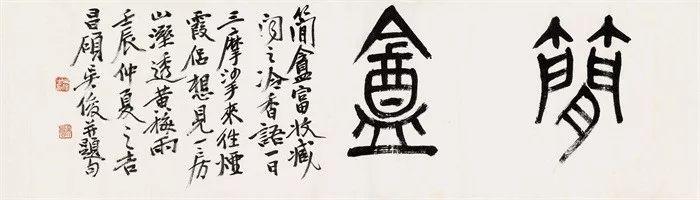 簡盦
簡盦富收藏
之冷香語一日
三摩挲來往煙
霞侶想見一房
山溼透黃梅雨
壬辰仲夏之吉
昌碩吳俊并題句